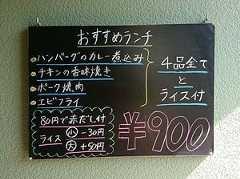 おすすめランチ
ハンバーグのカレー煮込み
チキンの香味焼き
ポーク焼肉
エビフライ
4品全て
と
ライス付
80円で赤だし付
ライス 小 -30円
大 +50円
¥900